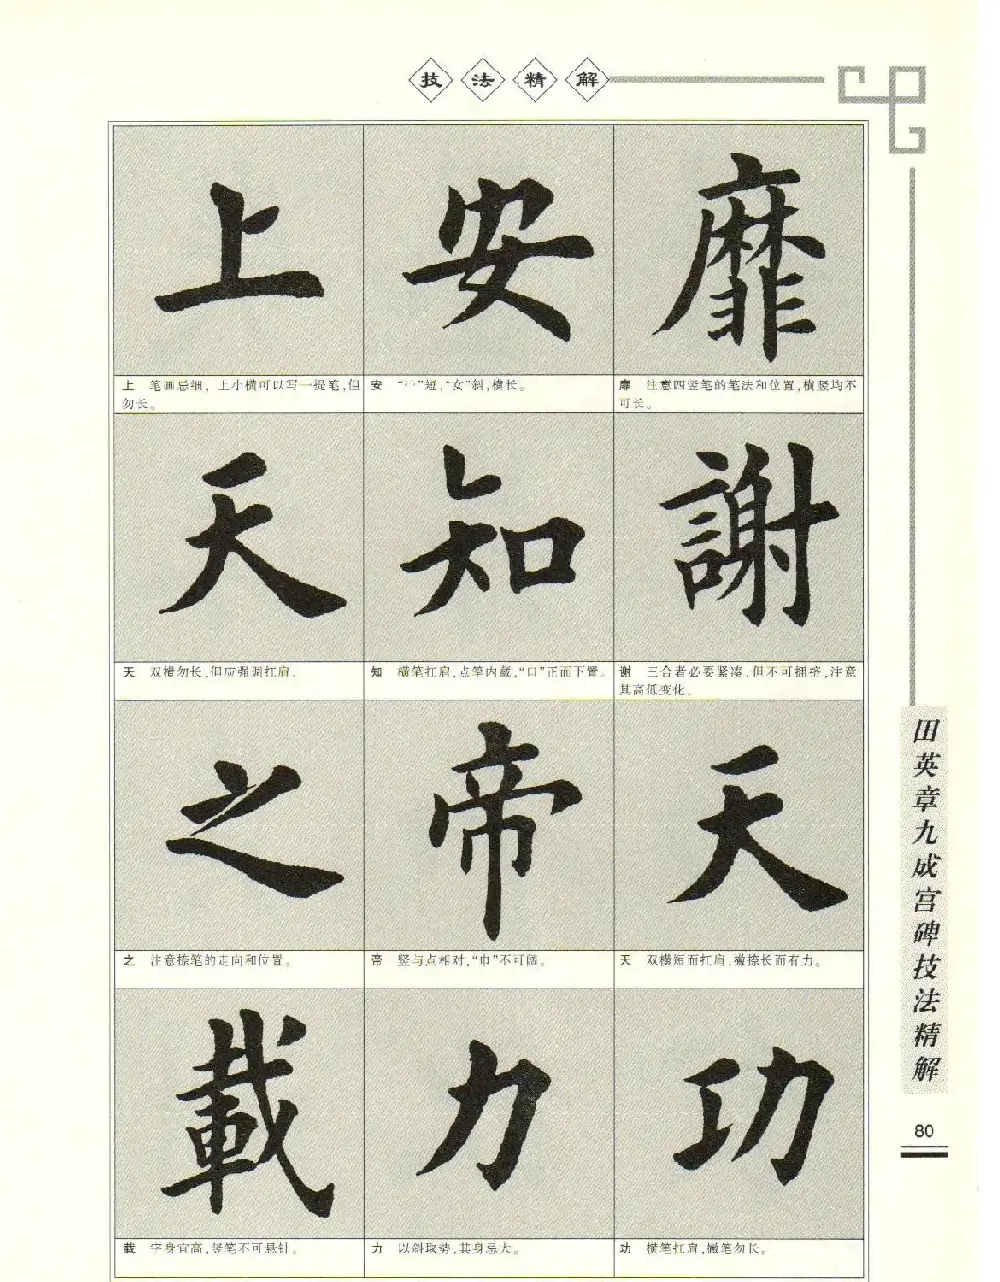 技法精解
上
安
靡
上 笔画忌细，上小横可以写一提笔，但
勿长。
安 “宀”短，“女”斜，横长。
靡 注意四竖笔的笔法和位置，横竖均不
可长。
天
知
謝
天 双横勿长，但应强调扛肩。
知 横笔扛肩，点笔内藏，“口”正而下置。
谢 三合者必要紧凑，但不可拥挤，注意
其高低变化。
之
帝
天
之 注意捺笔的走向和位置。
帝 竖与点相对，“巾”不可阔。
天 双横短而扛肩，撇捺长而有力。
載
力
功
载 字身宜高，竖笔不可悬针。
力 以斜取势，其身忌大。
功 横笔扛肩，撇笔勿长。
田英章九成宫碑技法精解
80